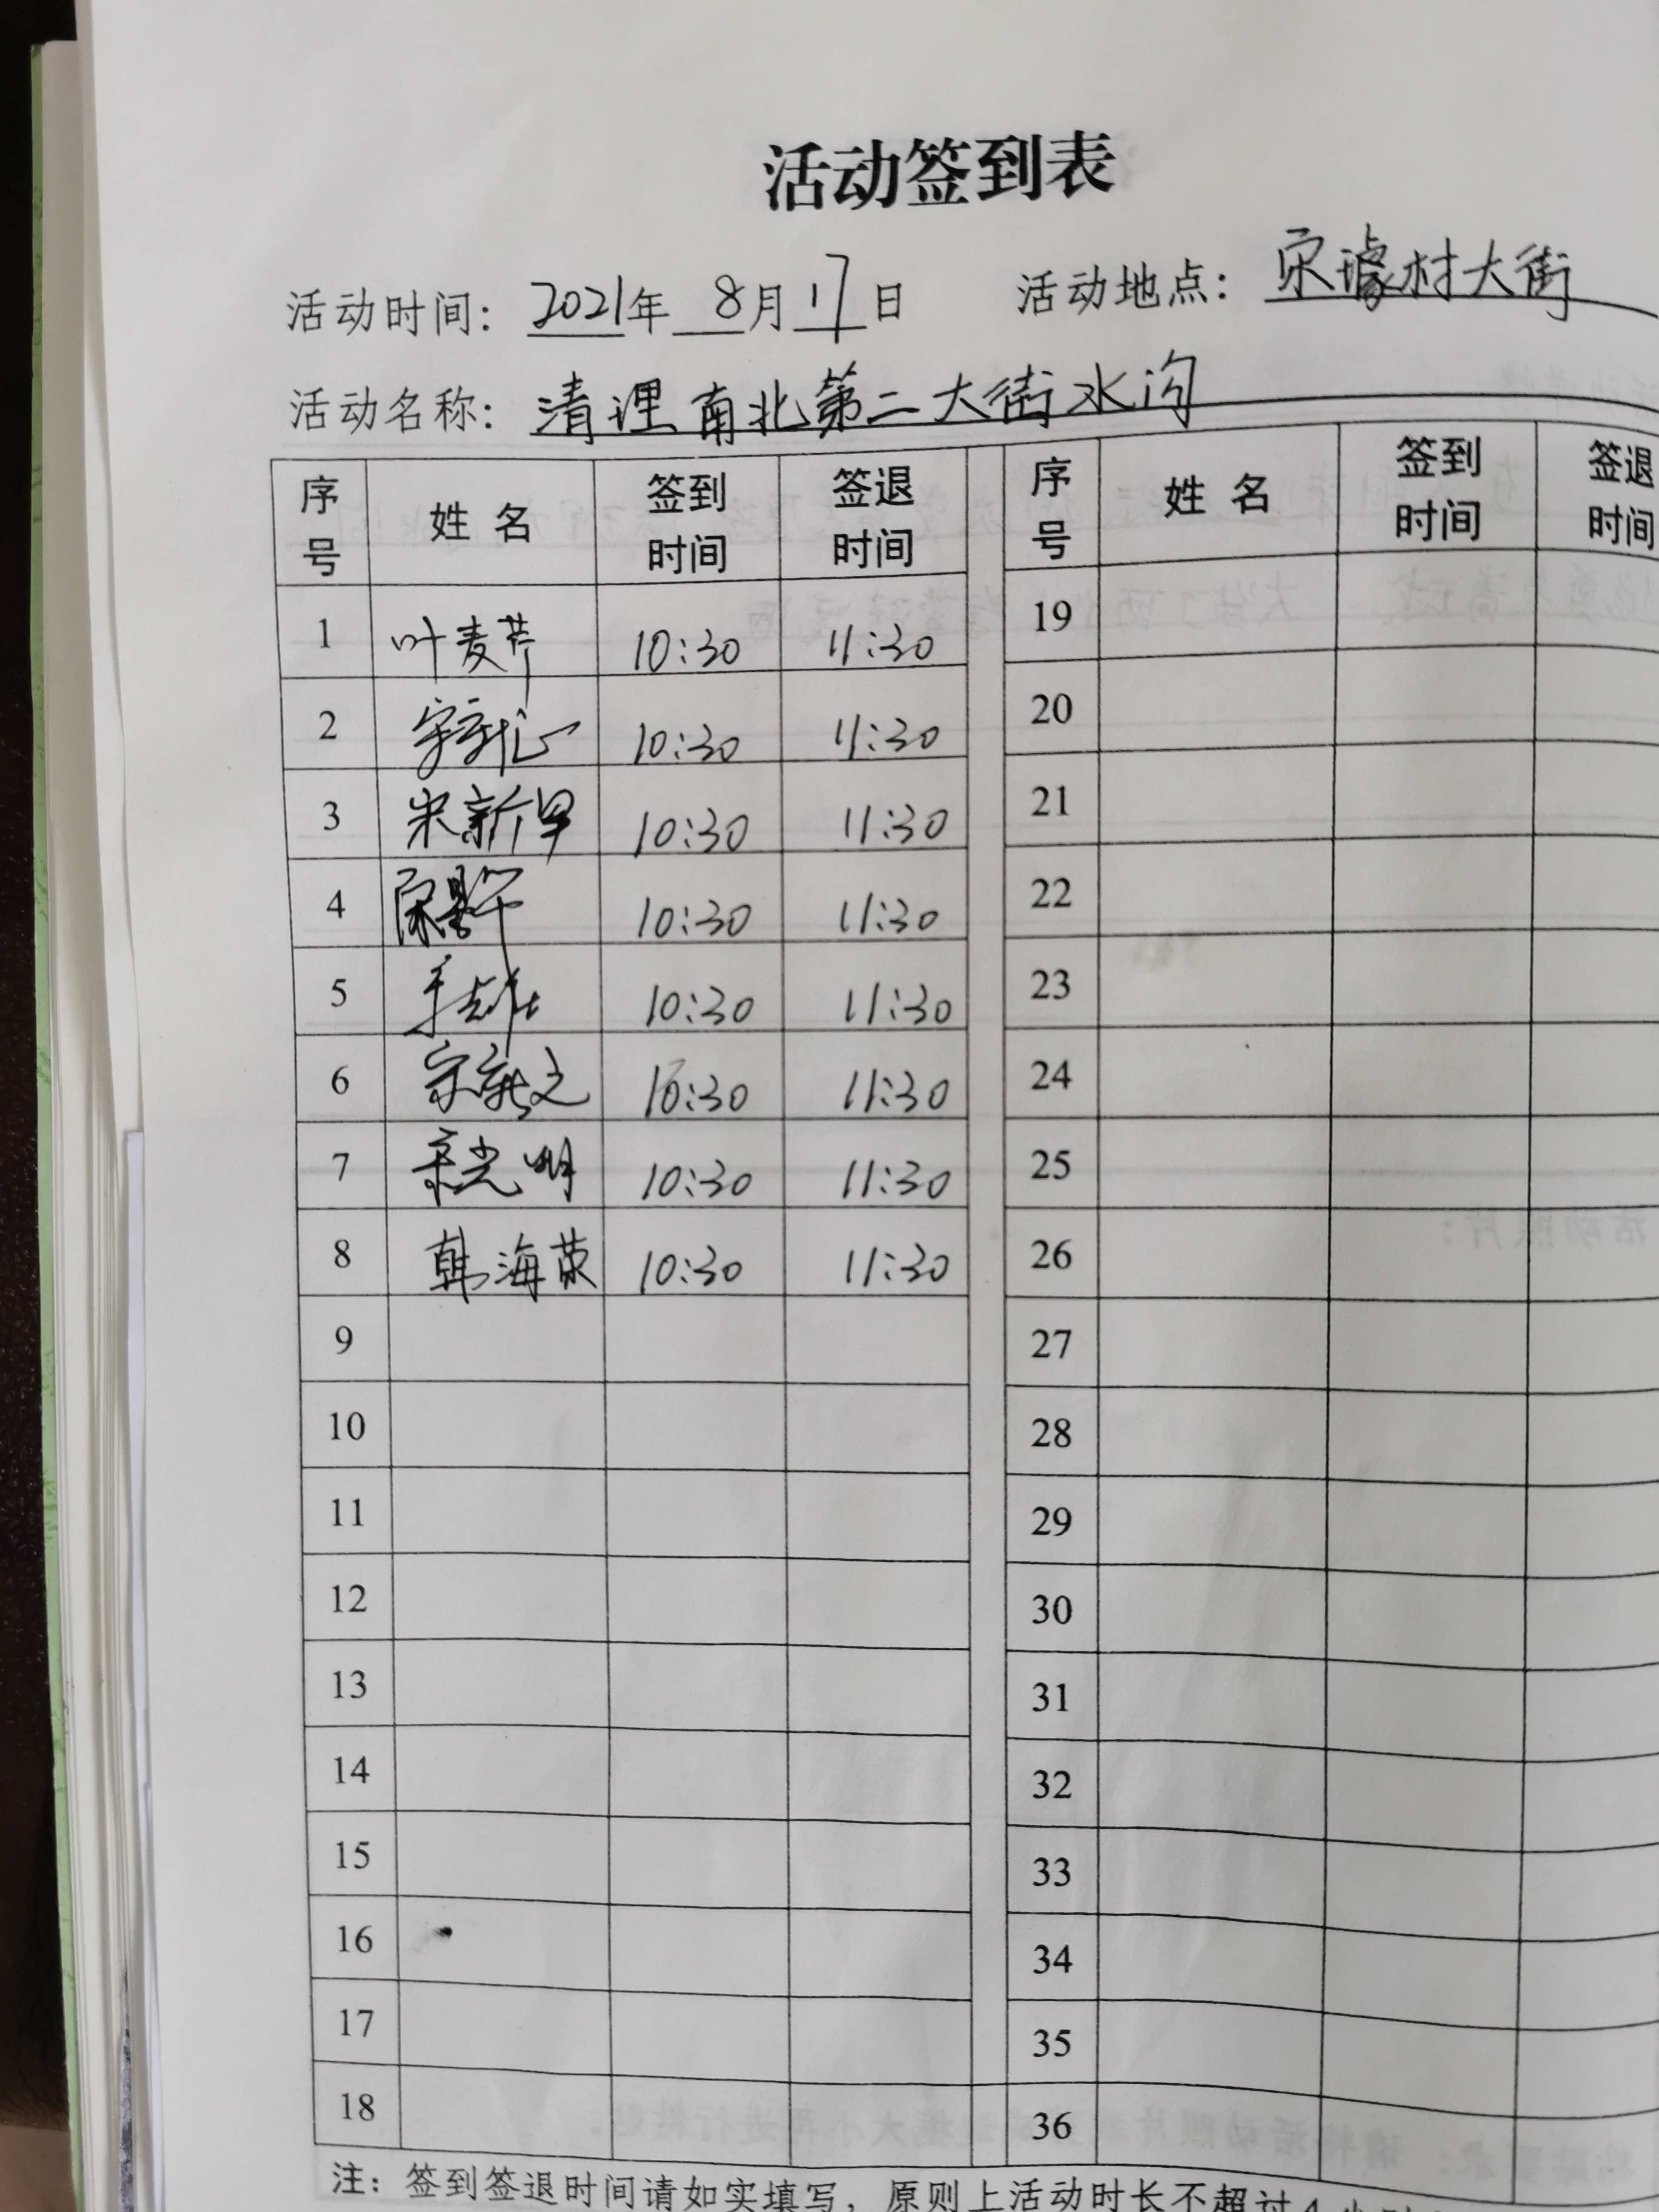 活动签到表
活动时间: 2021年 8月17日 活动地点: 宋璩村大街
活动名称: 清理南北第二大街水沟
序号 姓名 签到时间 签退时间 序号 姓名 签到时间 签退时间
1 叶麦芹 10:30 11:30 19
2 10:30 11:30 20
3 宋新早 10:30 11:30 21
4 10:30 11:30 22
5 10:30 11:30 23
6 宋新文 10:30 11:30 24
7 宋光明 10:30 11:30 25
8 韩海荣 10:30 11:30 26
9 27
10 28
11 29
12 30
13 31
14 32
15 33
16 34
17 35
18 36
注: 签到签退时间请如实填写, 原则上活动时长不超过4小时